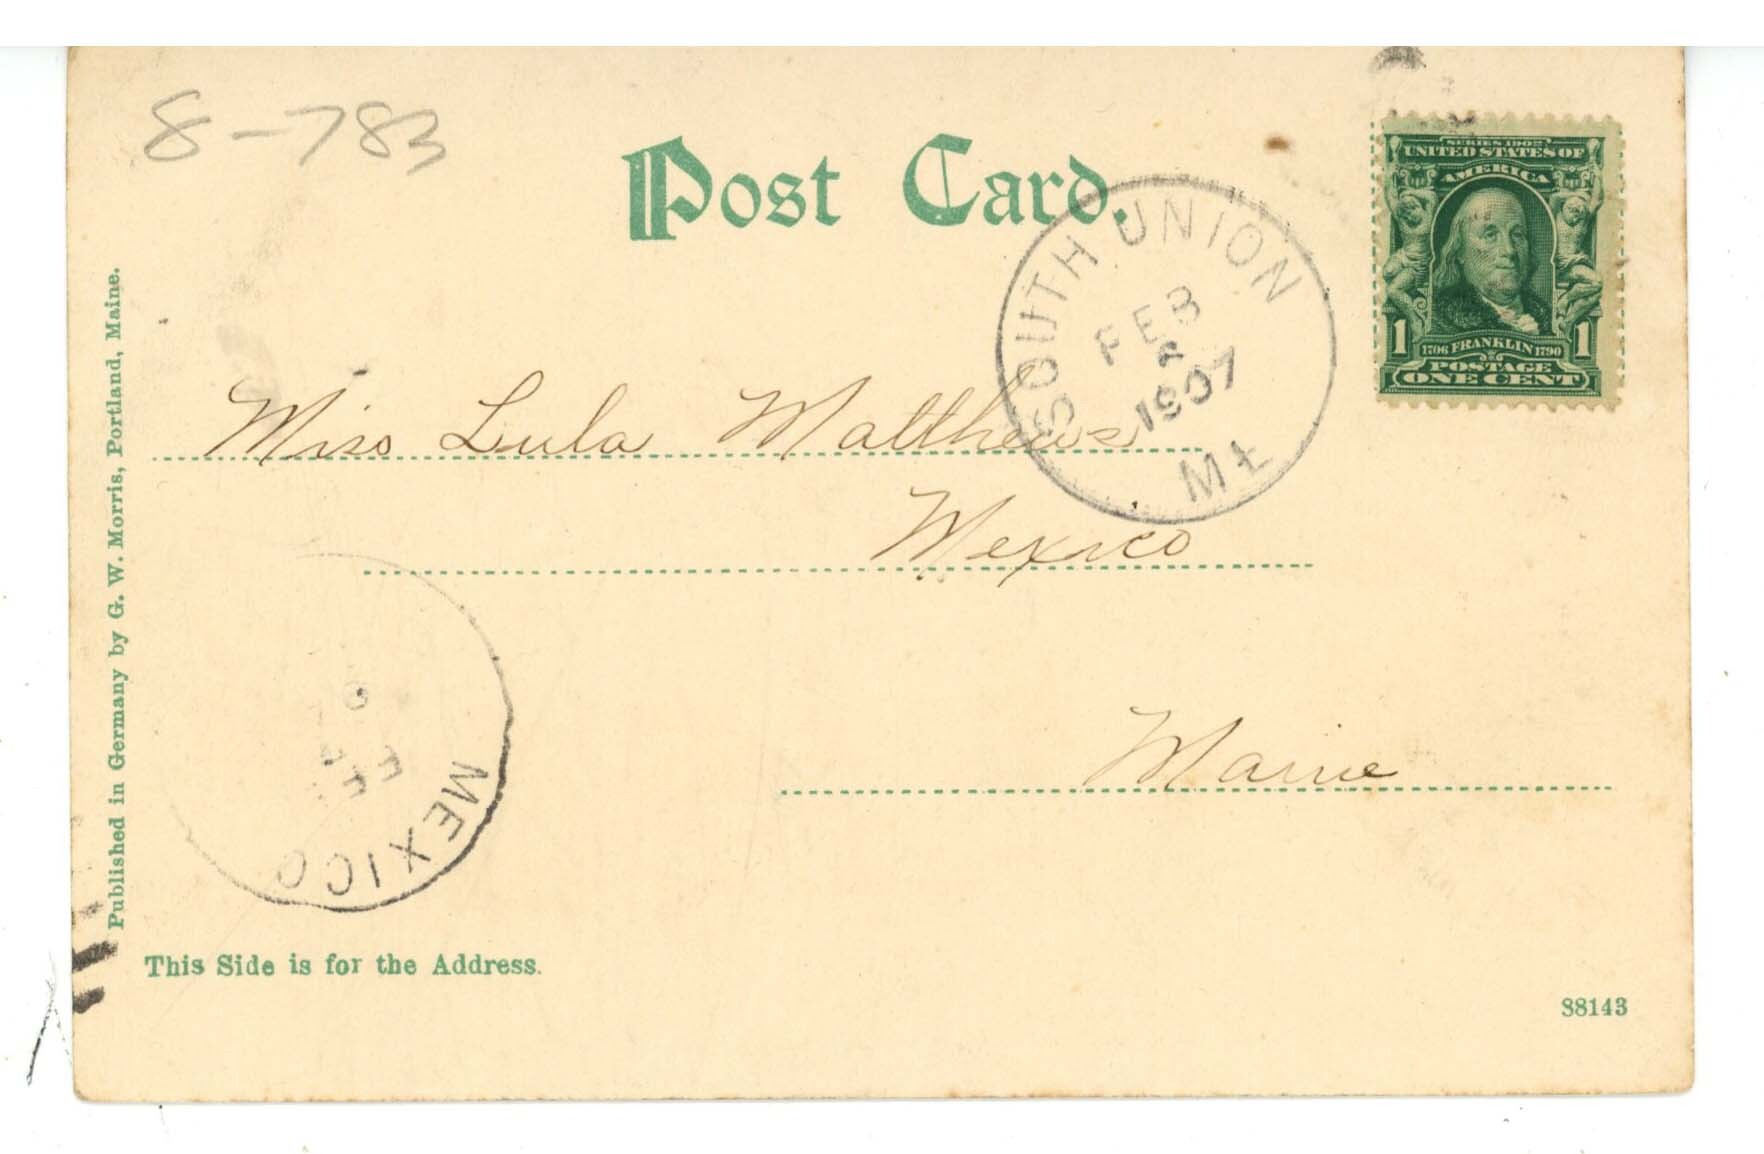 8-783
Post Card.
SERIES 1902
UNITED STATES OF
AMERICA
1 1706 FRANKLIN 1790 1
POSTAGE
ONE CENT
SOUTH UNION
FEB
6
1907
ME
Miss Lula Matthews
Mexico
Maine
MEXICO
Published in Germany by G. W. Morris, Portland, Maine.
This Side is for the Address.
88143